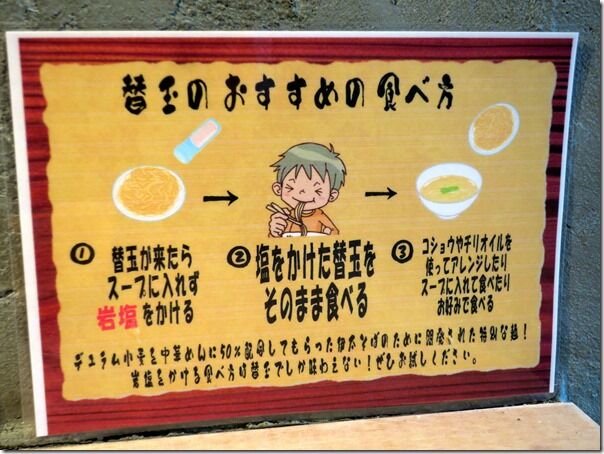 替玉のおすすめの食べ方
① 替玉が来たら
スープに入れず
岩塩をかける
② 塩をかけた替玉を
そのまま食べる
③ コショウやチリオイルを
使ってアレンジしたり
スープに入れて食べたり
お好みで食べる
デュラム小麦を中華めんに50%配合してもらった伊太そばのために開発された特別な麺！
岩塩をかける食べ方は替玉でしか味わえない！ぜひお試しください。